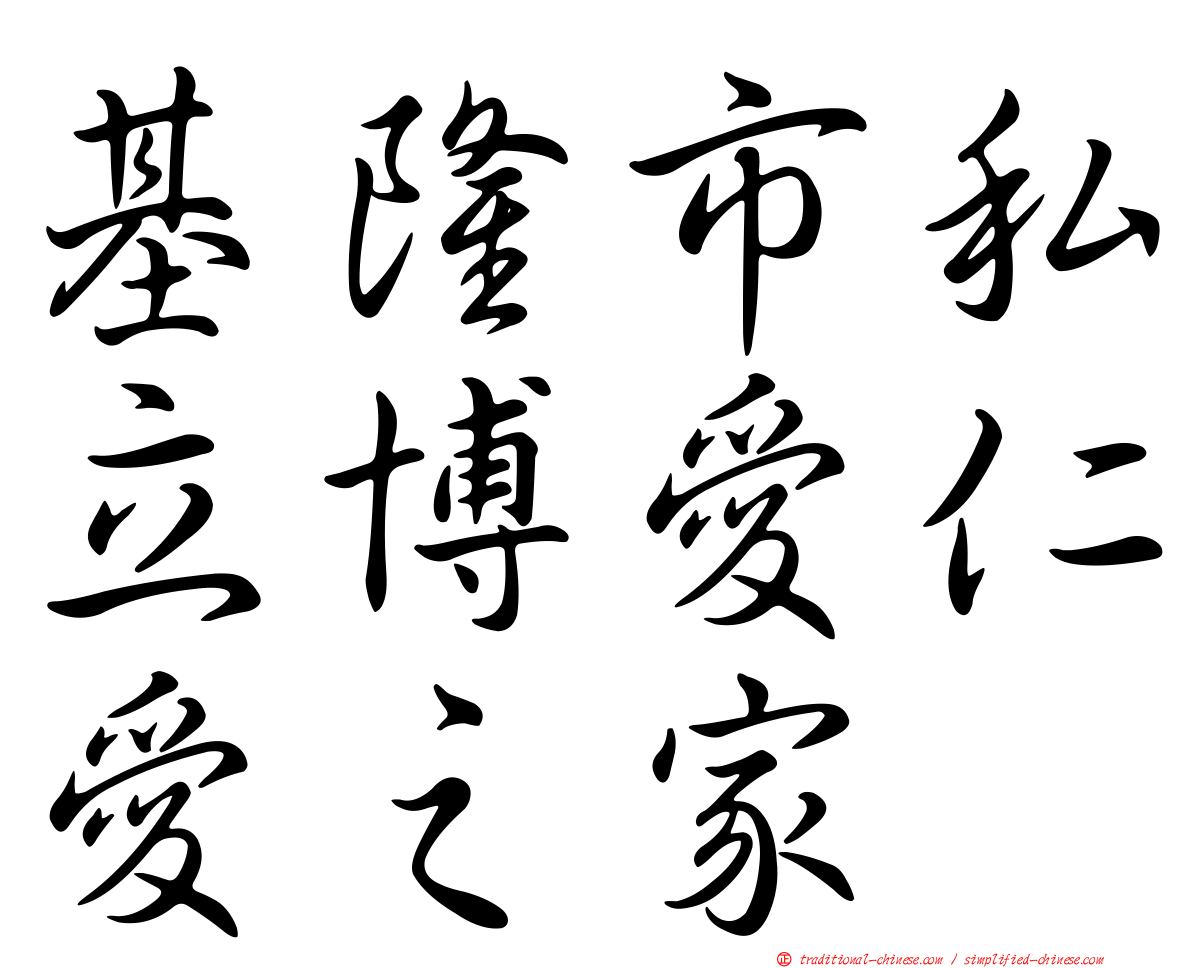 基隆市私
立博愛仁
愛之家
正 traditional-chinese.com / simplified-chinese.com